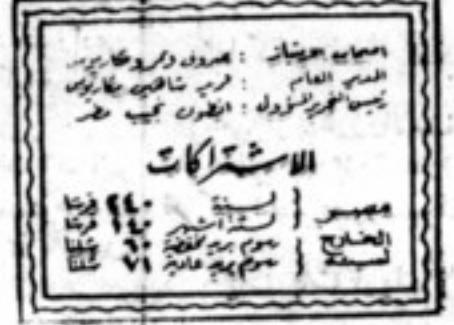 اصحاب الامتياز : صروف ونمر ومكاريوس
المدير العام : فريد شاهين مكاريوس
رئيس التحرير المسؤول : انطون نجيب مطر
الاشتراكات
مصر { لسنة ٢٤٠ قرشا
لستة اشهر ١٤٠ قرشا
الخارج { رسوم بريد مخفضة ٦٠ شلنا
لسنة { رسوم بريد عادية ٧١ شلنا